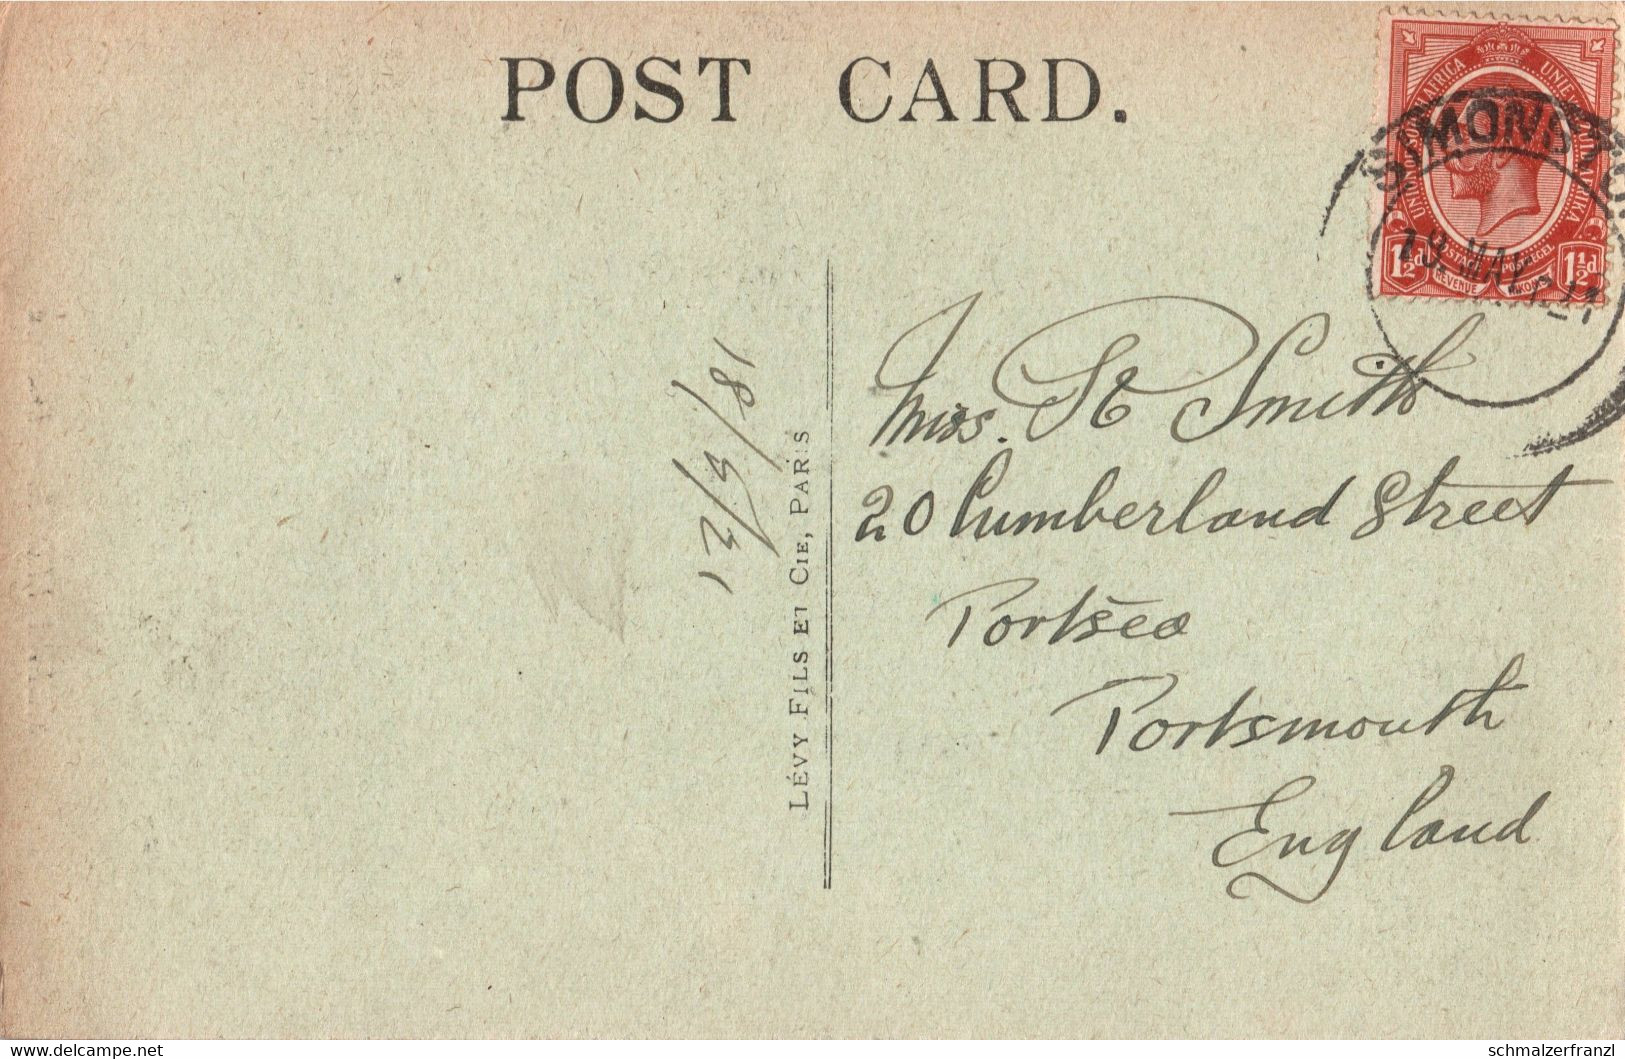 POST CARD.
UNION OF SOUTH AFRICA UNIE VAN ZUID AFRIKA
POSTAGE POSTZEGEL
1½d REVENUE INKOMST 1½d
SIMONSTO
19 MAY
18/5/21
LÉVY FILS ET CIE, PARIS
Miss. St Smith
20 Cumberland Street
Portsea
Portsmouth
England
www.delcampe.net
schmalzerfranzl